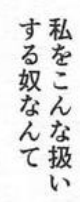 私をこんな扱い
する奴なんて